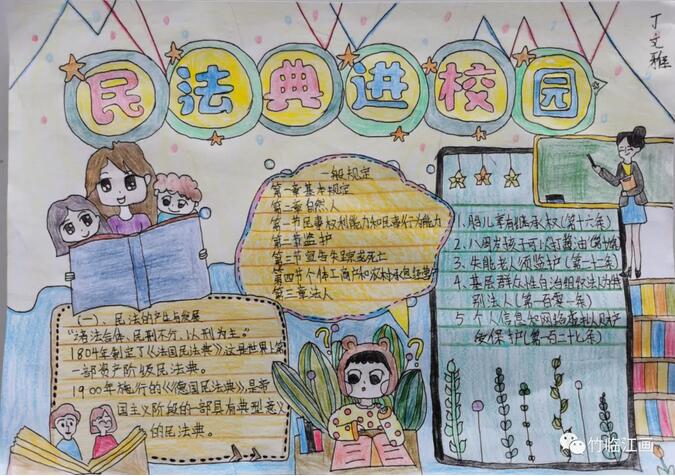 民法典进校园
丁文雅
一般规定
第一章基本规定
第二章自然人
第一节民事权利能力和民事行为能力
第二节监护
第三节宣告失踪或死亡
第四节个体工商户和农村承包经营户
第三章法人
1.胎儿享有继承权(第十六条)
2.八周岁孩子可以打酱油(第十九条)
3.失能老人须监护(第二十一条)
4.基层群众性自治组织法为特
别法人(第一百零一条)
5.个人信息和网络虚拟财产
受保护(第一百二十七条)
(一) 民法的产生与发展
“诸法合体、民刑不分,以刑为主。”
1804年制定了《法国民法典》这是世界上第
一部资产阶级民法典。
1900年施行的《德国民法典》是帝
国主义阶段的一部具有典型意义
的民法典。
竹临江画